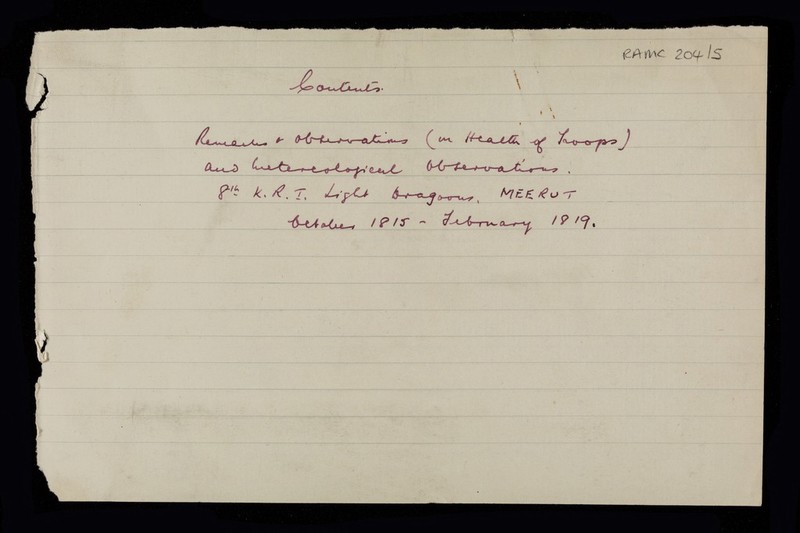 RAMC 204/5
Contents.
Remarks & Observations (on Health of Troops)
and Meteorological Observations.
8th K.R.I. Light Dragoons. MEERUT
October 1815 - February 1819.